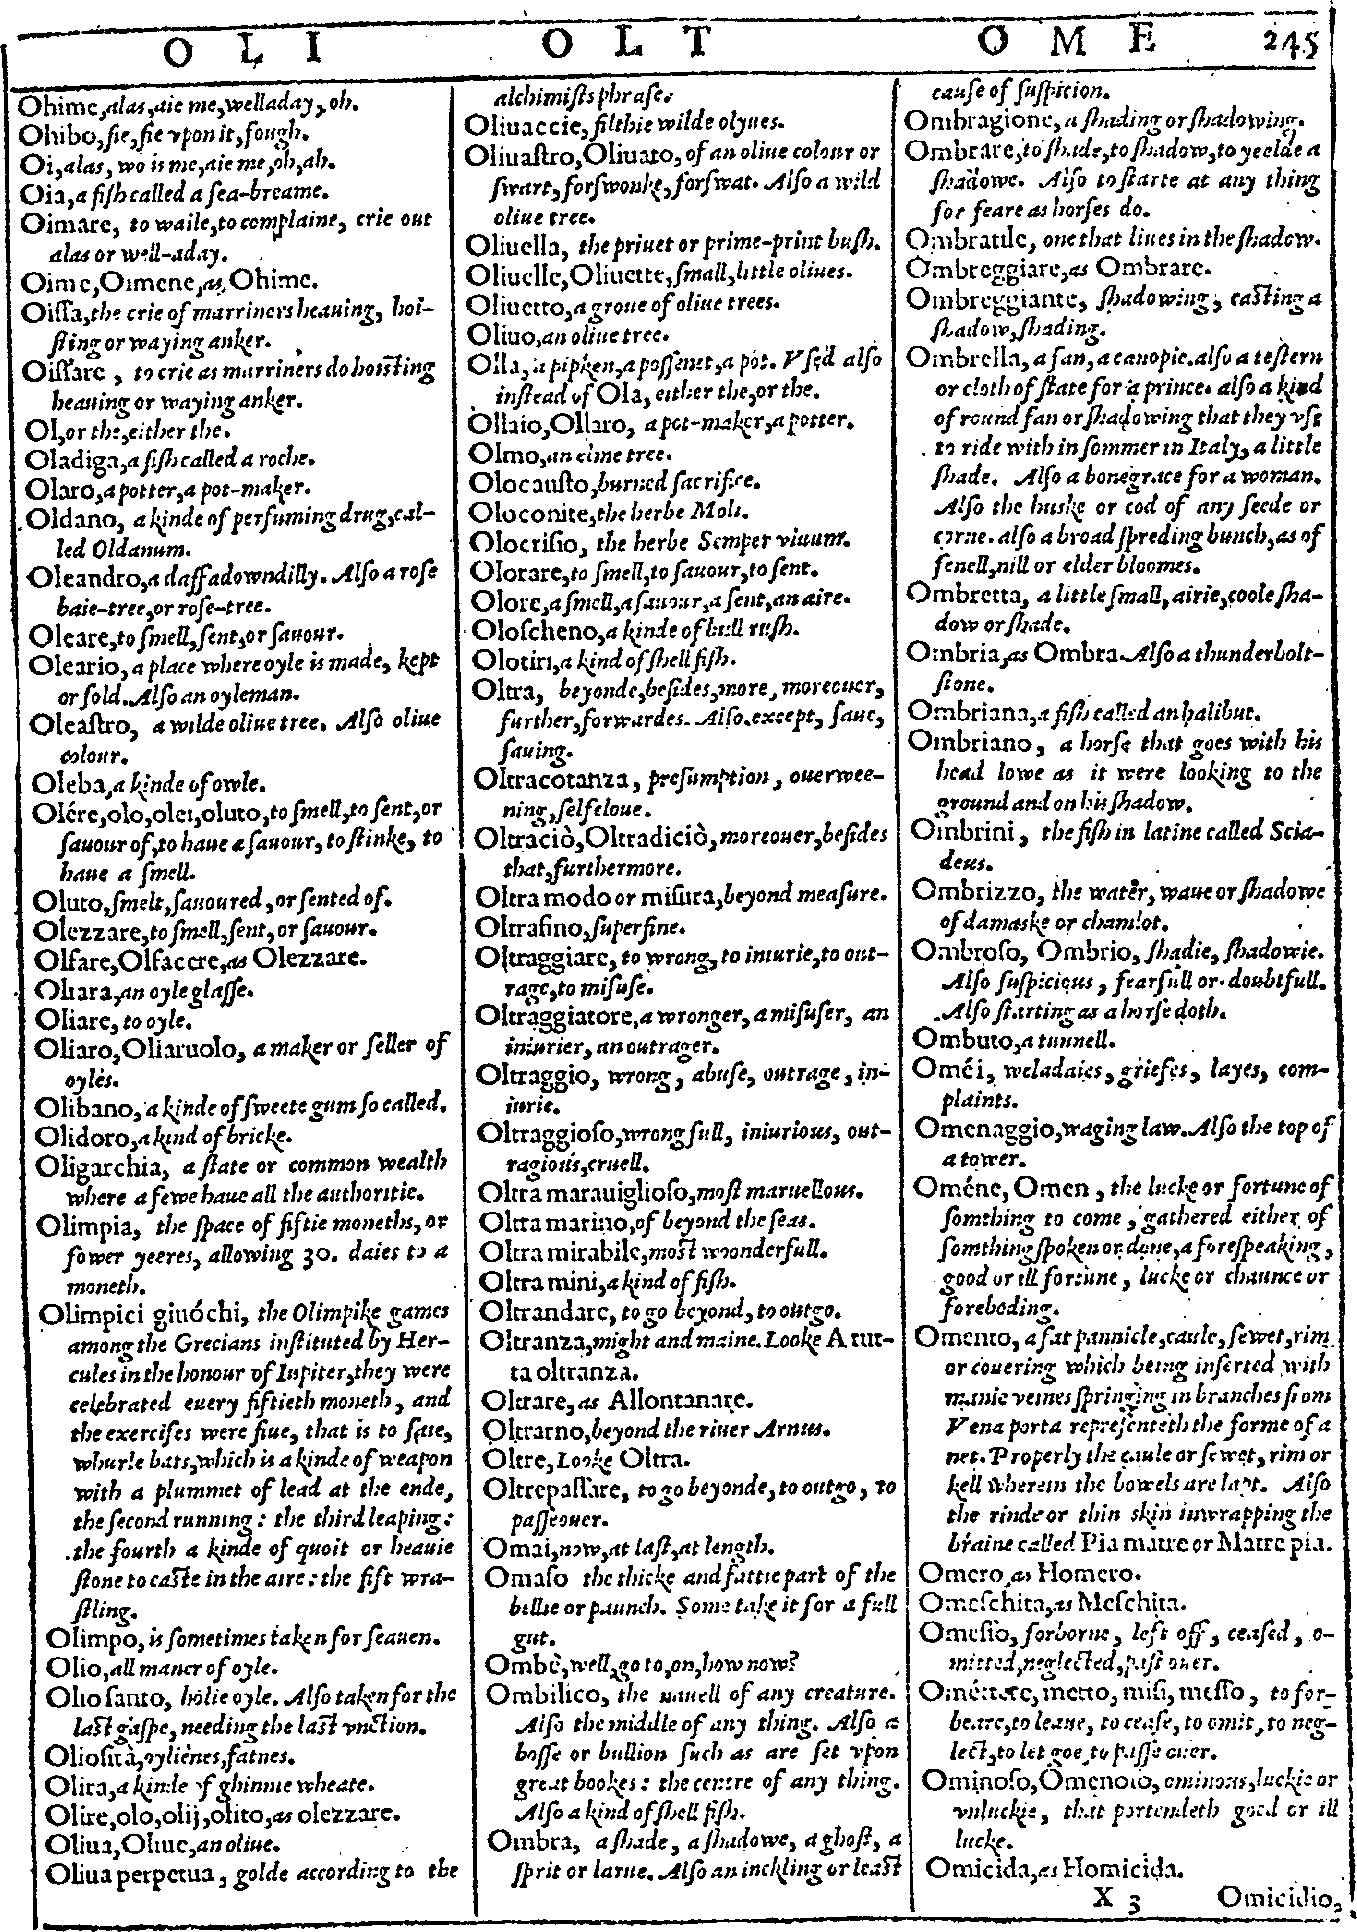 OLI OLT OME 245
Ohime, alas, aie me, welladay, oh.
Ohibo, fie, fie vpon it, fough.
Oi, alas, wo is me, aie me, oh, ah.
Oia, a fiſh called a ſea-breame.
Oimare, to waile, to complaine, crie out
alas or well-aday.
Oime, Oimene, as, Ohime.
Oiſſa, the crie of marriners heauing, hoi-
ſting or waying anker.
Oiſſare, to crie as marriners do hoiſting
heauing or waying anker.
Ol, or the, either the.
Oladiga, a fiſh called a roche.
Olaro, a potter, a pot-maker.
Oldano, a kinde of perfuming drug, cal-
led Oldanum.
Oleandro, a daffadowndilly. Alſo a roſe
baie-tree, or roſe-tree.
Oleare, to ſmell, ſent, or ſauour.
Oleario, a place where oyle is made, kept
or ſold. Alſo an oyleman.
Oleaſtro, a wilde oliue tree. Alſo oliue
colour.
Oleba, a kinde of owle.
Olére, olo, olei, oluto, to ſmell, to ſent, or
ſauour of, to haue a ſauour, to ſtinke, to
haue a ſmell.
Oluto, ſmelt, ſauoured, or ſented of.
Olezzare, to ſmell, ſent, or ſauour.
Olfare, Olfacere, as Olezzare.
Oliara, an oyle glaſſe.
Oliare, to oyle.
Oliaro, Oliaruolo, a maker or ſeller of
oyles.
Olibano, a kinde of ſweete gum ſo called.
Olidoro, a kind of bricke.
Oligarchia, a ſtate or common wealth
where a fewe haue all the authoritie.
Olimpia, the ſpace of fiftie moneths, or
fower yeeres, allowing 30. daies to a
moneth.
Olimpici giuóchi, the Olimpike games
among the Grecians inſtituted by Her-
cules in the honour of Iupiter, they were
celebrated euery fiftieth moneth, and
the exerciſes were fiue, that is to ſaie,
whurle bats, which is a kinde of weapon
with a plummet of lead at the ende,
the ſecond running: the third leaping:
the fourth a kinde of quoit or heauie
ſtone to caſte in the aire: the fift wra-
ſtling.
Olimpo, is ſometimes taken for heauen.
Olio, all maner of oyle.
Olio ſanto, holie oyle. Alſo taken for the
laſt gaſpe, needing the laſt vnction.
Olioſità, oylienes, fatnes.
Olira, a kinde of ghinnie wheate.
Olire, olo, olij, olito, as olezzare.
Oliua, Oliue, an oliue.
Oliua perpetua, golde according to the
alchimiſts phraſe.
Oliuaccie, filthie wilde olyues.
Oliuaſtro, Oliuato, of an oliue colour or
ſwart, forſwonke, forſwat. Alſo a wild
oliue tree.
Oliuella, the priuet or prime-print buſh.
Oliuelle, Oliuette, ſmall, little oliues.
Oliuetto, a groue of oliue trees.
Oliuo, an oliue tree.
Olla, a pipken, a poſſenet, a pot. Vſed alſo
inſtead of Ola, either the, or the.
Ollaio, Ollaro, a pot-maker, a potter.
Olmo, an elme tree.
Olocauſto, burned ſacrifice.
Oloconite, the herbe Moli.
Olocriſio, the herbe Semper viuum.
Olorare, to ſmell, to ſauour, to ſent.
Olore, a ſmell, a ſauour, a ſent, an aire.
Oloſcheno, a kinde of bull ruſh.
Olotiri, a kind of ſhell fiſh.
Oltra, beyonde, beſides, more, moreouer,
further, forwardes. Alſo except, ſaue,
ſauing.
Oltracotanza, preſumption, ouerwee-
ning, ſelfeloue.
Oltraciò, Oltradiciò, moreouer, beſides
that, furthermore.
Oltra modo or miſura, beyond meaſure.
Oltrafino, ſuperfine.
Oltraggiare, to wrong, to iniurie, to out-
rage, to miſuſe.
Oltraggiatore, a wronger, a miſuſer, an
iniurier, an outrager.
Oltraggio, wrong, abuſe, outrage, in-
iurie.
Oltraggioſo, wrongfull, iniurious, out-
ragious, cruell.
Oltra marauiglioſo, moſt maruellous.
Oltra marino, of beyond the ſeas.
Oltra mirabile, moſt woonderfull.
Oltra mini, a kind of fiſh.
Oltrandare, to go beyond, to outgo.
Oltranza, might and maine. Looke A tut-
ta oltranza.
Oltrare, as Allontanare.
Oltrarno, beyond the riuer Arnus.
Oltre, Looke Oltra.
Oltrepaſſare, to go beyonde, to outgo, to
paſſeouer.
Omai, now, at laſt, at length.
Omaſo the thicke and fattie part of the
billie or paunch. Some take it for a full
gut.
Ombè, well, go to, on, how now?
Ombilico, the nauell of any creature.
Alſo the middle of any thing. Alſo a
boſſe or bullion ſuch as are ſet vpon
great bookes: the centre of any thing.
Alſo a kind of ſhell fiſh.
Ombra, a ſhade, a ſhadowe, a ghoſt, a
ſprit or larue. Alſo an inckling or leaſt
cauſe of ſuſpicion.
Ombragione, a ſhading or ſhadowing.
Ombrare, to ſhade, to ſhadow, to yeelde a
ſhadowe. Alſo to ſtarte at any thing
for feare as horſes do.
Ombratile, one that liues in the ſhadow.
Ombreggiare, as Ombrare.
Ombreggiante, ſhadowing, caſting a
ſhadow, ſhading.
Ombrella, a fan, a canopie. alſo a teſtern
or cloth of ſtate for a prince. alſo a kind
of round fan or ſhadowing that they vſe
to ride with in ſommer in Italy, a little
ſhade. Alſo a bonegrace for a woman.
Alſo the huske or cod of any ſeede or
corne. alſo a broad ſpreding bunch, as of
fenell, nill or elder bloomes.
Ombretta, a little ſmall, airie, coole ſha-
dow or ſhade.
Ombria, as Ombra. Alſo a thunderbolt-
ſtone.
Ombriana, a fiſh called an halibut.
Ombriano, a horſe that goes with his
head lowe as it were looking to the
ground and on his ſhadow.
Ombrini, the fiſh in latine called Scia-
deus.
Ombrizzo, the water, waue or ſhadowe
of damaske or chamlot.
Ombroſo, Ombrio, ſhadie, ſhadowie.
Alſo ſuſpicious, fearfull or doubtfull.
Alſo ſtarting as a horſe doth.
Ombuto, a tunnell.
Oméi, weladaies, griefes, layes, com-
plaints.
Omenaggio, waging law. Alſo the top of
a tower.
Oméne, Omen, the lucke or fortune of
ſomthing to come, gathered either of
ſomthing ſpoken or done, a foreſpeaking,
good or ill fortune, lucke or chaunce or
foreboding.
Omento, a fat pannicle, caule, ſewet, rim
or couering which being inſerted with
manie veines ſpringing in branches from
Vena porta repreſenteth the forme of a
net. Properly the caule or ſewet, rim or
kell wherein the bowels are lapt. Alſo
the rinde or thin skin inwrapping the
braine called Pia matre or Matre pia.
Omero, as Homero.
Omeſchita, as Meſchita.
Omeſſo, forborne, left off, ceaſed, o-
mitted, neglected, paſt ouer.
Ométtere, metto, miſi, meſſo, to for-
beare, to leaue, to ceaſe, to omit, to neg-
lect, to let goe, to paſſe ouer.
Ominoſo, Omenoſo, ominous, luckie or
vnluckie, that portendeth good or ill
lucke.
Omicida, as Homicida.
X 3 Omicidio,